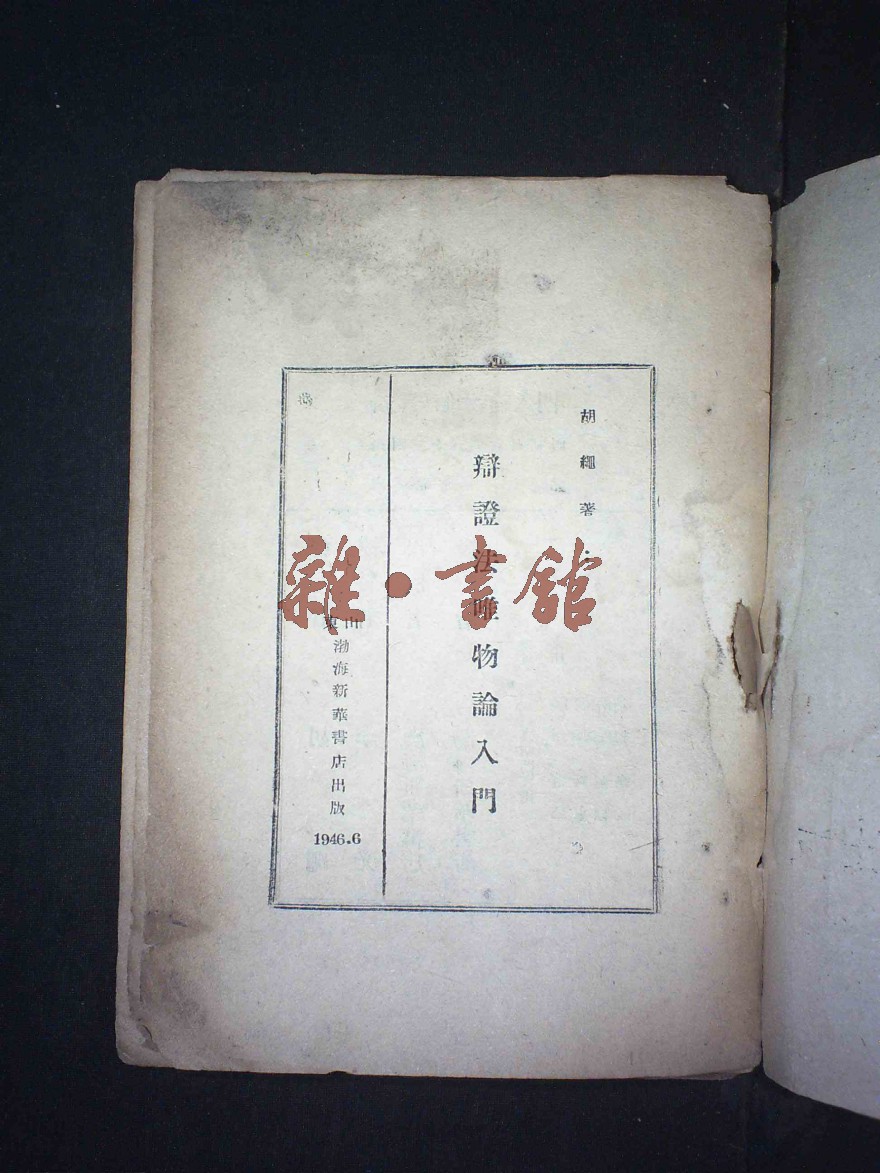 胡繩著
辯證法唯物論入門
山東
渤海新華書店出版
1946.6
雜·書館